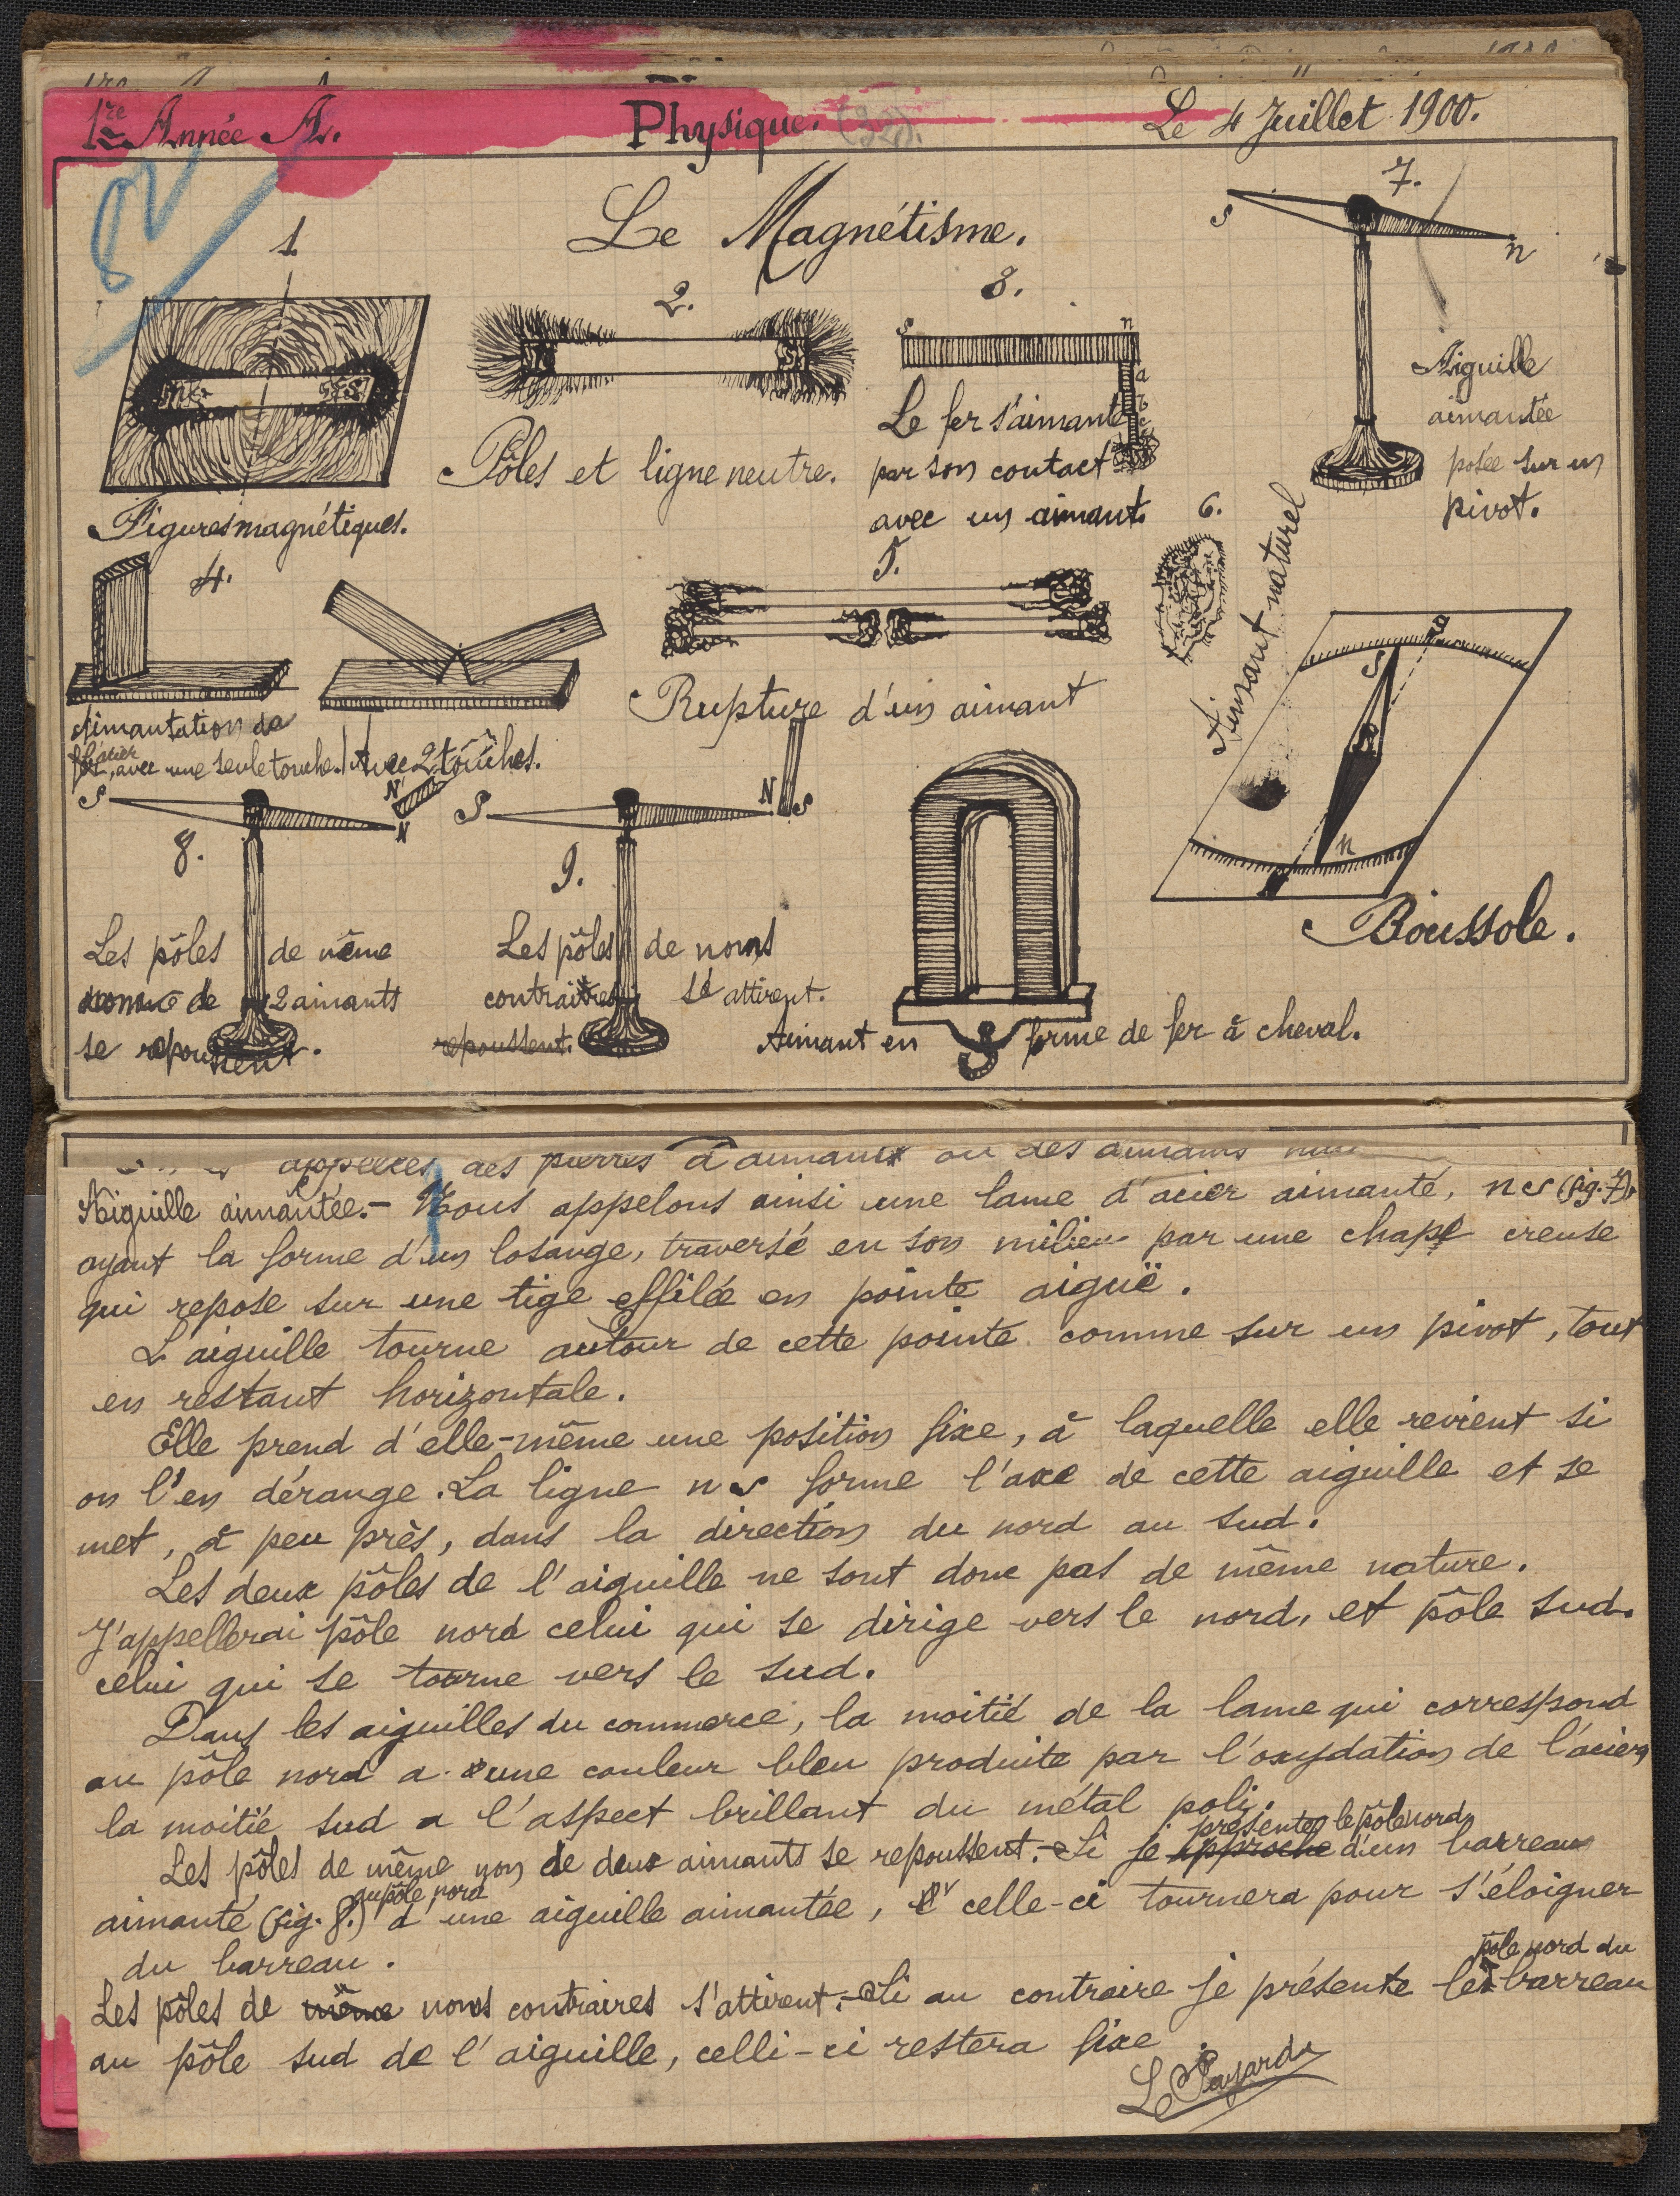 1re Année A.
Physique. (32).
Le 4 Juillet 1900.
Le Magnétisme.
1.
Figures magnétiques.
2.
Pôles et ligne neutre.
3.
s n
a
Le fer s'aimante
par son contact
avec un aimant.
7.
S n
Aiguille
aimantée
posée sur un
pivot.
4.
Aimantation de
l'acier, avec une seule touche.
Avec 2 touches.
5.
Rupture d'un aimant
6.
Aimant naturel
S
n
Boussole.
S N N
8.
Les pôles de même
nom de 2 aimants
se repoussent.
S N S
9.
Les pôles de noms
contraires s'attirent.
repoussent.
Aimant en forme de fer à cheval.
appelées des pierres d'aimant ou des aimants
Aiguille aimantée.- Nous appelons ainsi une lame d'acier aimanté, ns (fig. 7),
ayant la forme d'un losange, traversé en son milieu par une chape creuse
qui repose sur une tige effilée en pointe aiguë.
L'aiguille tourne autour de cette pointe comme sur un pivot, tout
en restant horizontale.
Elle prend d'elle-même une position fixe, à laquelle elle revient si
on l'en dérange. La ligne ns forme l'axe de cette aiguille et se
met, à peu près, dans la direction du nord au sud.
Les deux pôles de l'aiguille ne sont donc pas de même nature.
J'appellerai pôle nord celui qui se dirige vers le nord, et pôle sud.
celui qui se tourne vers le sud.
Dans les aiguilles du commerce, la moitié de la lame qui correspond
au pôle nord a une couleur bleu produite par l'oxydation de l'acier,
la moitié sud a l'aspect brillant du métal poli.
Les pôles de même nom de deux aimants se repoussent.- Si je approche présente le pôle nord d'un barreau
aimanté (fig. 8.) au pôle nord d'une aiguille aimantée, celle-ci tournera pour s'éloigner
du barreau.
Les pôles de même noms contraires s'attirent.- Si au contraire je présente le pôle nord du barreau
au pôle sud de l'aiguille, celli-ci restera fixe.